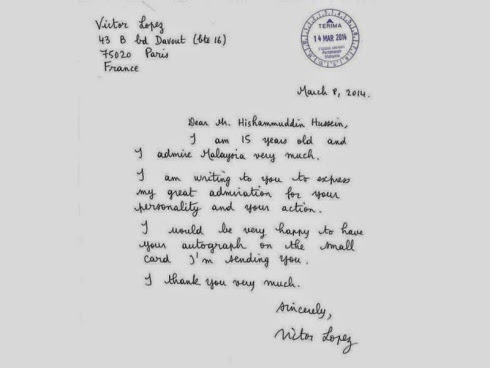 Victor Lopez
43 B bd Davout (bte 16)
75020 Paris
France
TERIMA
14 MAR 2014
March 8, 2014.
Dear Mr. Hishammuddin Hussein,
I am 15 years old and
I admire Malaysia very much.
I am writing to you to express
my great admiration for your
personality and your action.
I would be very happy to have
your autograph on the small
card I'm sending you.
I thank you very much.
Sincerely,
Victor Lopez